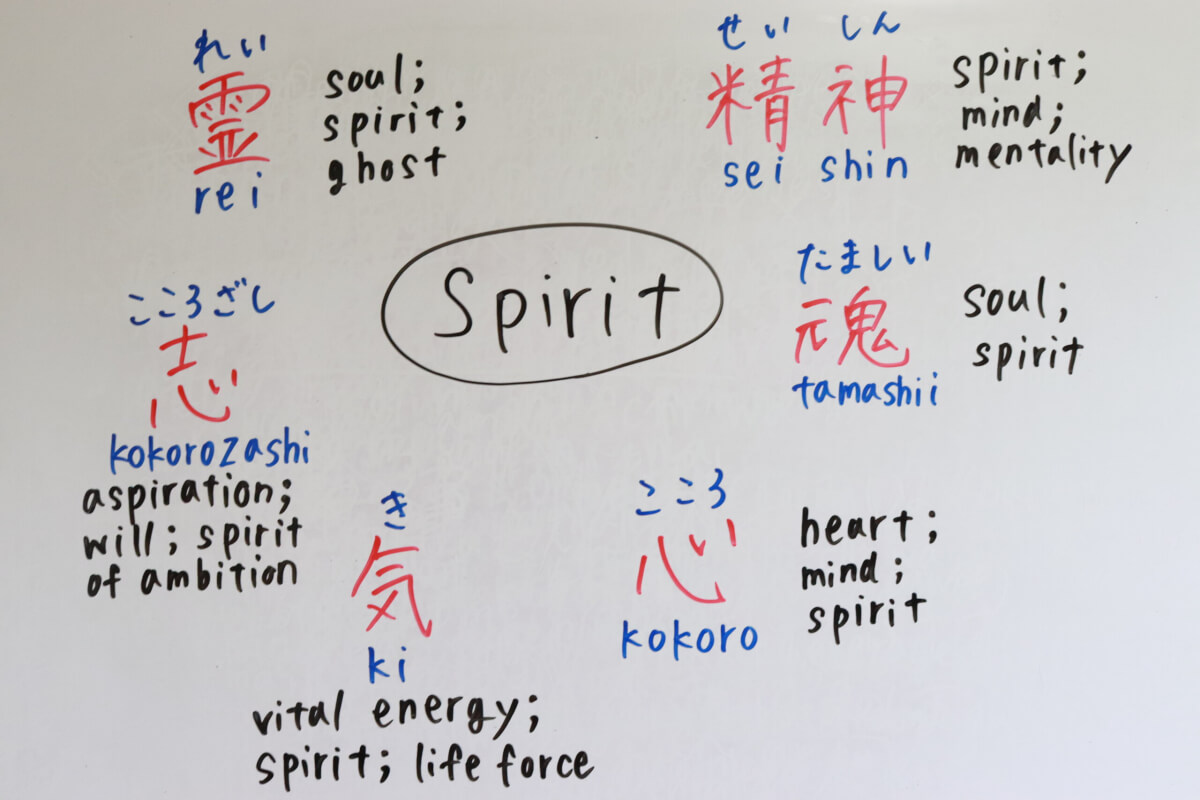 れい
霊
rei
soul;
spirit;
ghost
せい しん
精神
sei shin
spirit;
mind;
mentality
Spirit
こころざし
志
kokorozashi
aspiration;
will; spirit
of ambition
たましい
魂
tamashii
soul;
spirit
き
気
ki
vital energy;
spirit; life force
こころ
心
kokoro
heart;
mind;
spirit